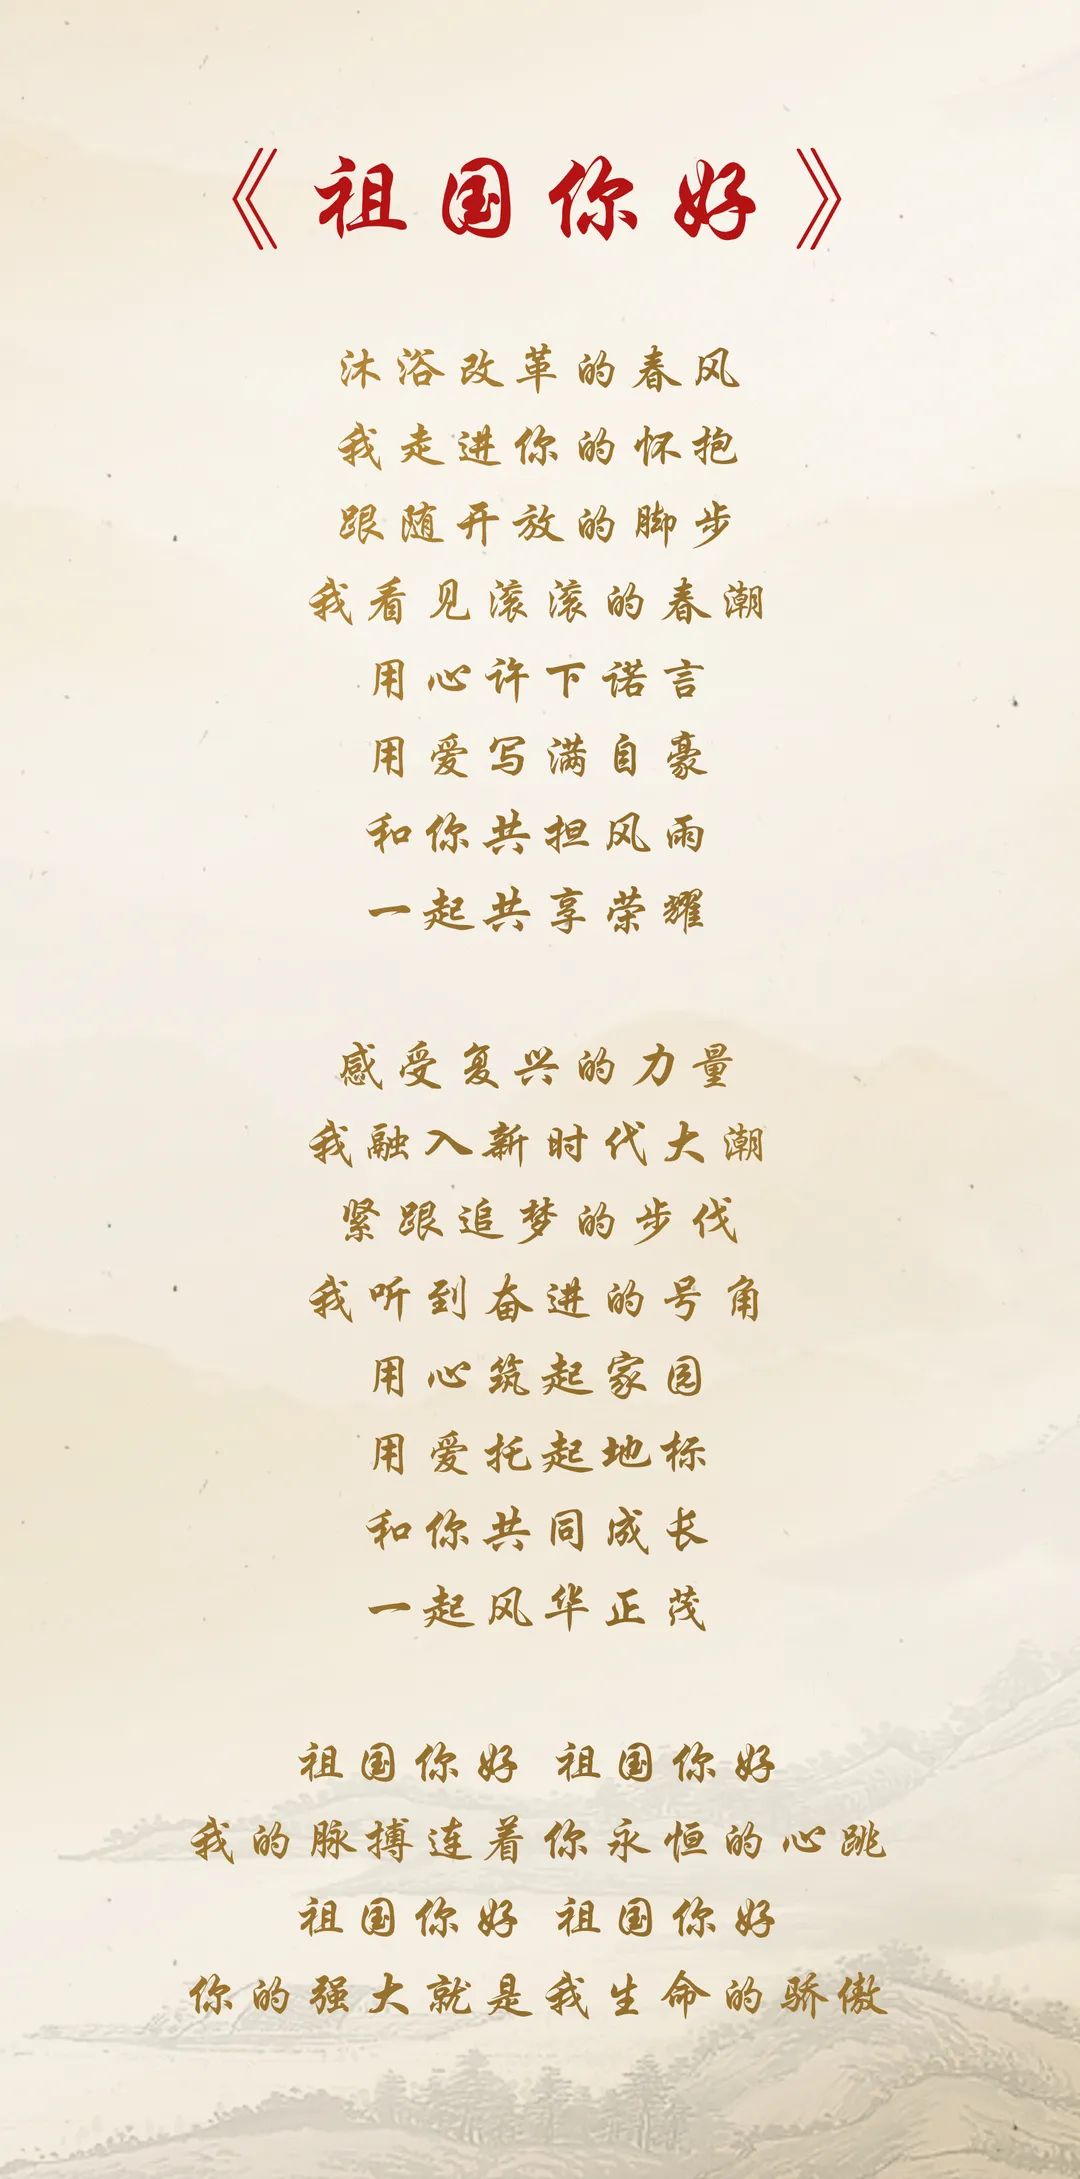 《祖国你好》
沐浴改革的春风
我走进你的怀抱
跟随开放的脚步
我看见滚滚的春潮
用心许下诺言
用爱写满自豪
和你共担风雨
一起共享荣耀
感受复兴的力量
我融入新时代大潮
紧跟追梦的步伐
我听到奋进的号角
用心筑起家园
用爱托起地标
和你共同成长
一起风华正茂
祖国你好 祖国你好
我的脉搏连着你永恒的心跳
祖国你好 祖国你好
你的强大就是我生命的骄傲